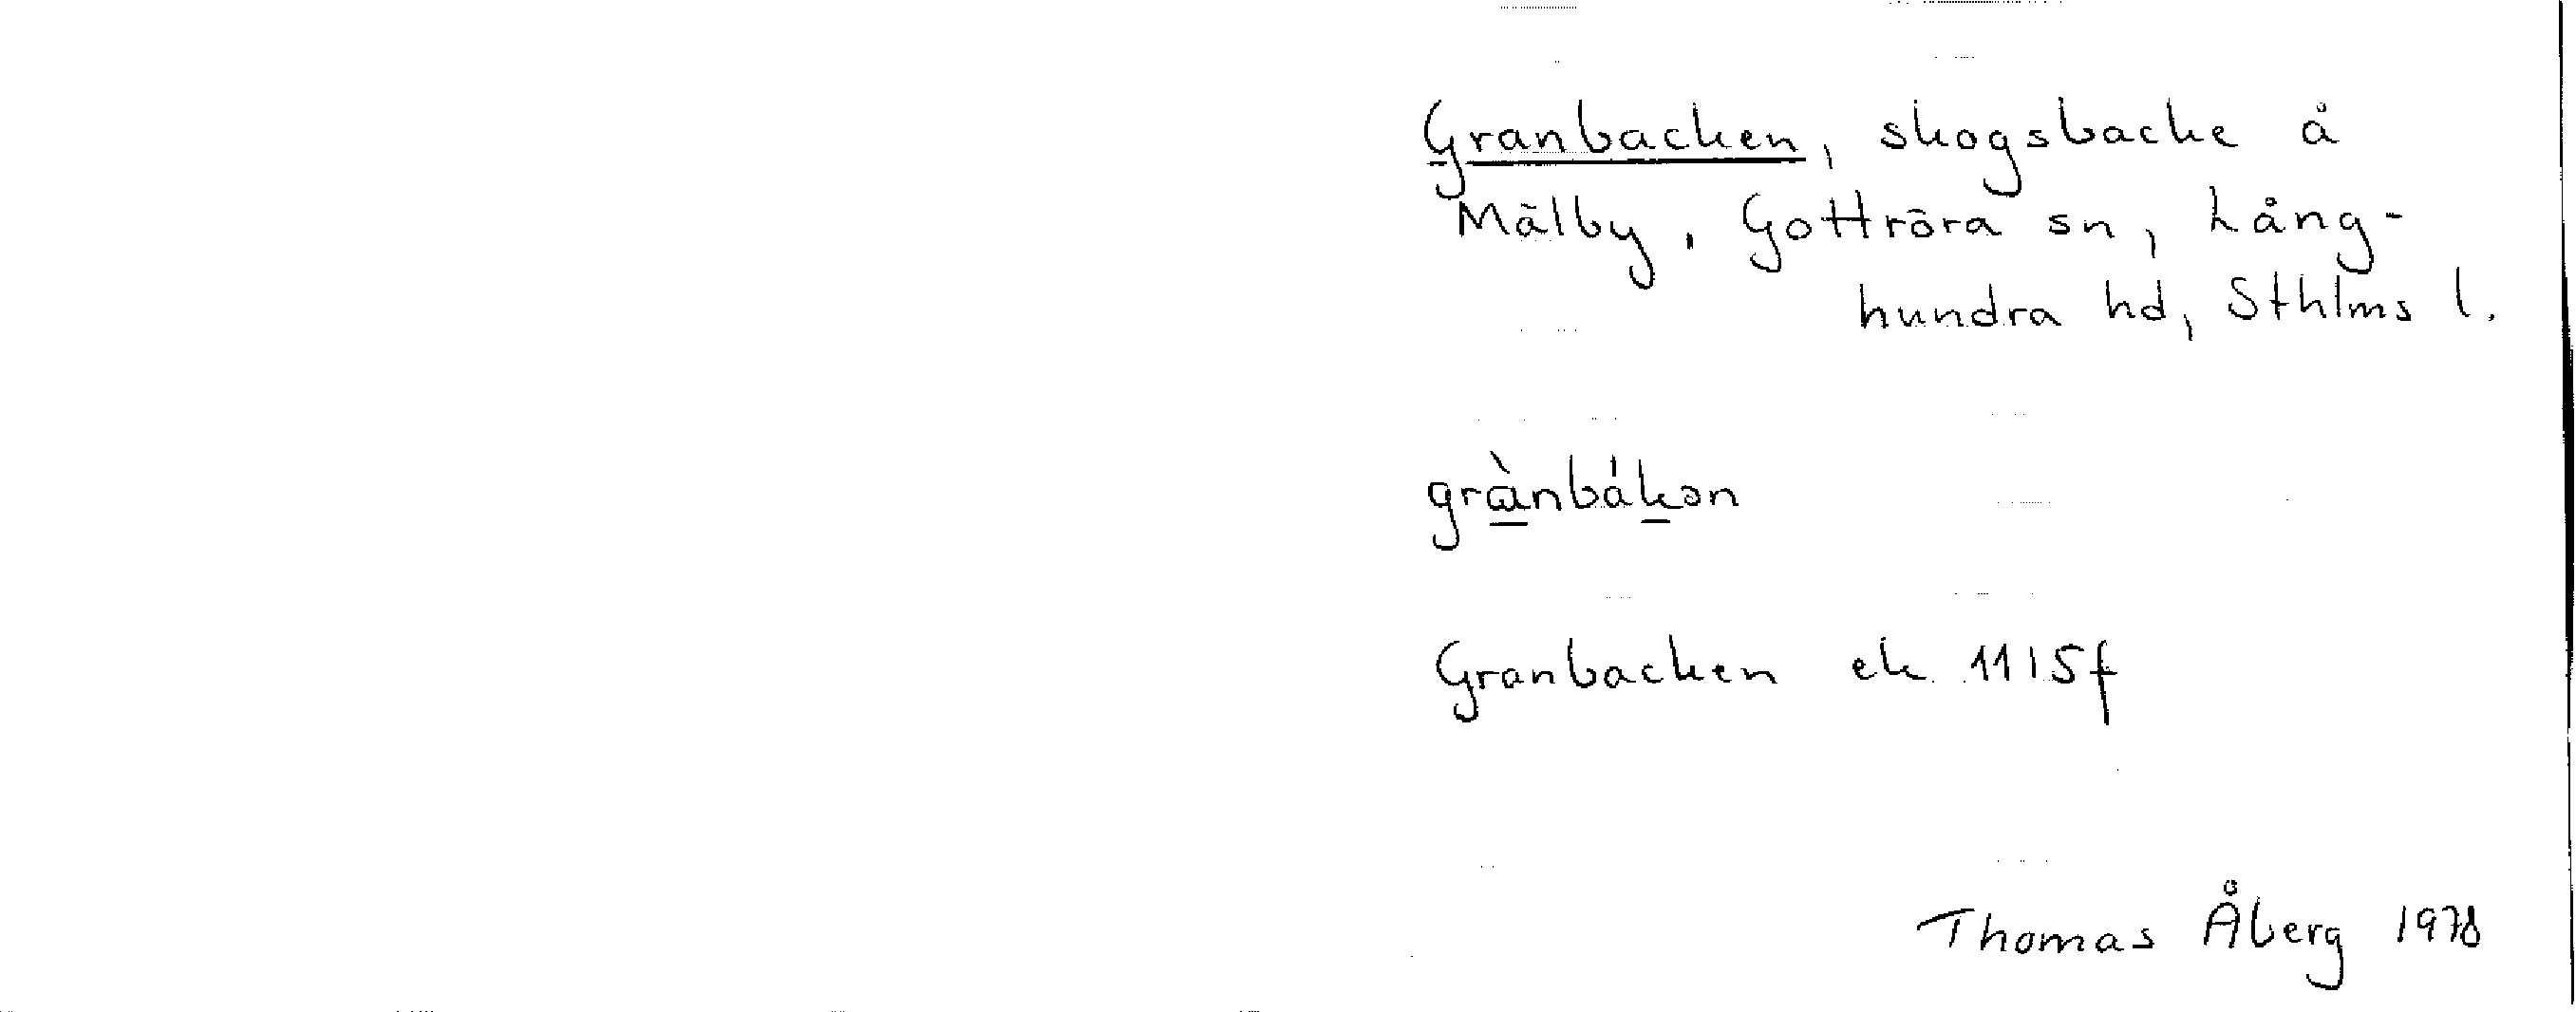 Granbacken, skogsbacke å
Mälby, Gottröra sn, Lång-
hundra hd, Sthlms l.
grànbákən
Granbacken ek 11 I 5f
Thomas Åberg 1978